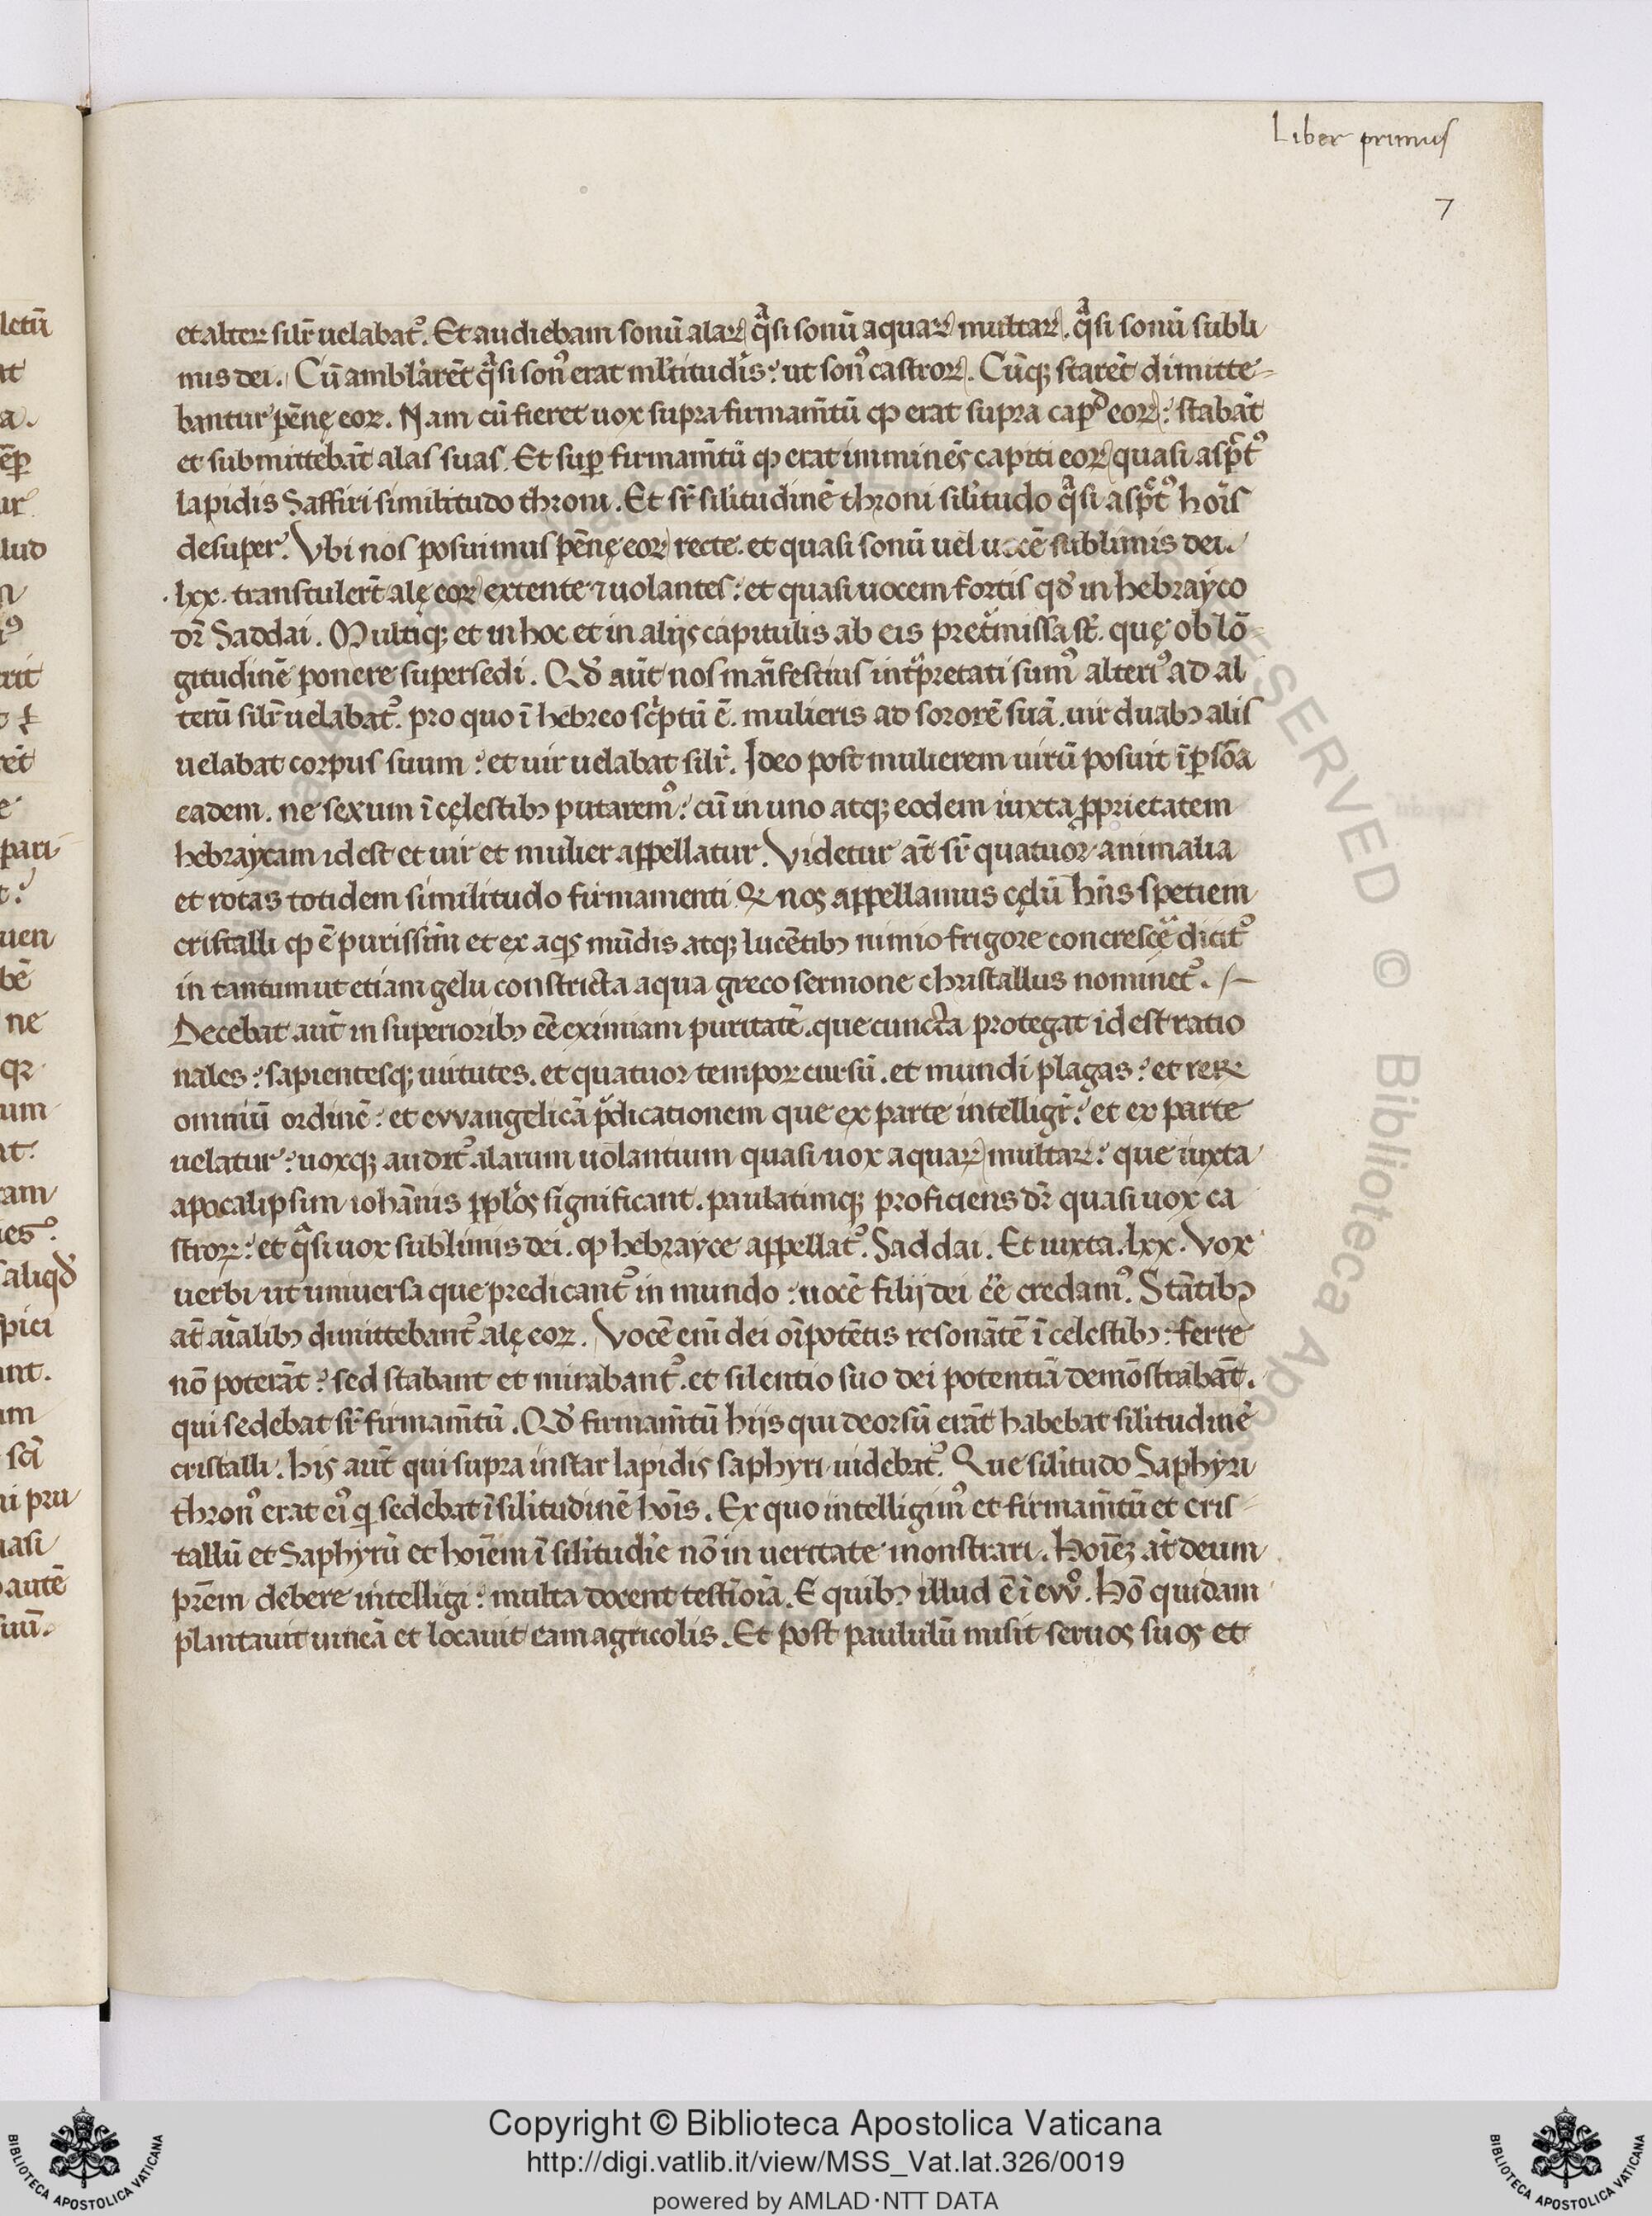 Liber primus
7
et alter silr̄ uelabat᷒. Et audiebam sonū alaꝝ qͣsi sonū aquaꝝ multaꝝ. qͣsi sonū subli
mis dei. Cū amblarēt qͣsi son᷒ erat ml̄titudīs: ut son᷒ castroꝝ. Cūqꝫ starēt dimitte=
bantur pēnę eoꝝ. Nam cū fieret uox supra firmam̄tū qͥ erat supra capᵈ eoꝝ: stabāt
et submittebāt alas suas. Et suꝑ firmam̄tū qͥ erat imminēs capiti eoꝝ quasi asp̄t᷒
lapidis Saffiri similitudo throni. Et sr̄ sil̄itudinē throni sil̄itudo qͣsi asp̄t᷒ hoīs
desuper. Vbi nos posuimus pēnę eoꝝ recte. et quasi sonū uel uocē sublimis dei.
.lxx. transtulert̄ alę eoꝝ extente ⁊ uolantes: et quasi uocem fortis qd̄ in hebrayco
dr̄ Saddai. Multaqꝫ et in hoc et in alijs capitulis ab eis pretm̄issa st̄. quę ob lō
gitudinē ponere supersedi. Qd̄ aūt nos maīfestius intp̄retati sum᷒ alteri᷒ ad al
terū silr̄ uelabat᷒. pro quo ī hebreo scͥptū ē. mulieris ad sororē suā. uir duabꝫ alis
uelabat corpus suum: et uir uelabat silr̄. Ideo post mulierem uirū posuit ī ꝑsōa
eadem. ne sexum ī cęlestibꝫ putarem᷒: cū in uno atqꝫ eodem iuxta ꝓprietatem
hebraycam idest et uir et mulier appellatur. Videtur āt sr̄ quatuor animalia
et rotas totidem similitudo firmamenti Qͥ nos appellamus cęlū hn̄s spetiem
cristalli qͥ ē purissim̄ et ex aqͥs mūdis atqꝫ lucētibꝫ nimio frigore concresce᷒ dicit᷒
in tantum ut etiam gelu constricta aqua greco sermone christallus nominet᷒.
Decebat aūt in superioribꝫ eē eximiam puritatē. que cuncta protegat idest ratio
nales: sapientesqꝫ uirtutes. et quatuor tempoꝝ cursū. et mundi plagas: et reꝝ
omniū ordinē: et evvangelicā p̄dicationem que ex parte intelligr̄: et ex parte
uelatur: uoxqꝫ audit᷒ alarum uolantium quasi uox aquaꝝ multaꝝ: que iuxta
apocalipsim iohānis ppl̄os significant. paulatimqꝫ proficiens dr̄ quasi uox ca
stroꝝ: et qͣsi uox sublimis dei. qͥ hebrayce appellat᷒. Saddai. Et iuxta .lxx. Vox
uerbi ut uniuersa que predicant᷒ in mundo: uocē filij dei eē credam᷒. Stātibꝫ
āt aīalibꝫ dimittebant᷒ alę eoꝝ. Vocē enī dei oīpotētis resonātē ī celestibꝫ: ferre
nō poterāt: sed stabant et mirabant᷒. et silentio suo dei potentiā demōstrabāt.
qui sedebat sr̄ firmam̄tū. Qd̄ firmam̄tū hijs qui deorsū erāt habebat sil̄itudinē
cristalli. his aūt qui supra instar lapidis saphyri uidebat᷒. Que sil̄itudo Saphyri
thron᷒ erat ei᷒ qͥ sedebat ī sil̄itudinē hoīs. Ex quo intelligim᷒ et firmam̄tū et cris=
tallū et Saphyrū et hoīem ī sil̄itudīe nō in ueritate monstrari. Hoīeꝫ āt deum
pr̄em debere intelligi: multa docent testīoīa. E quibꝫ illud ē ī evv°. Hō quidam
plantauit uineā et locauit eam agricolis. Et post paululū misit seruos suos et
Copyright © Biblioteca Apostolica Vaticana
http://digi.vatlib.it/view/MSS_Vat.lat.326/0019
powered by AMLAD·NTT DATA